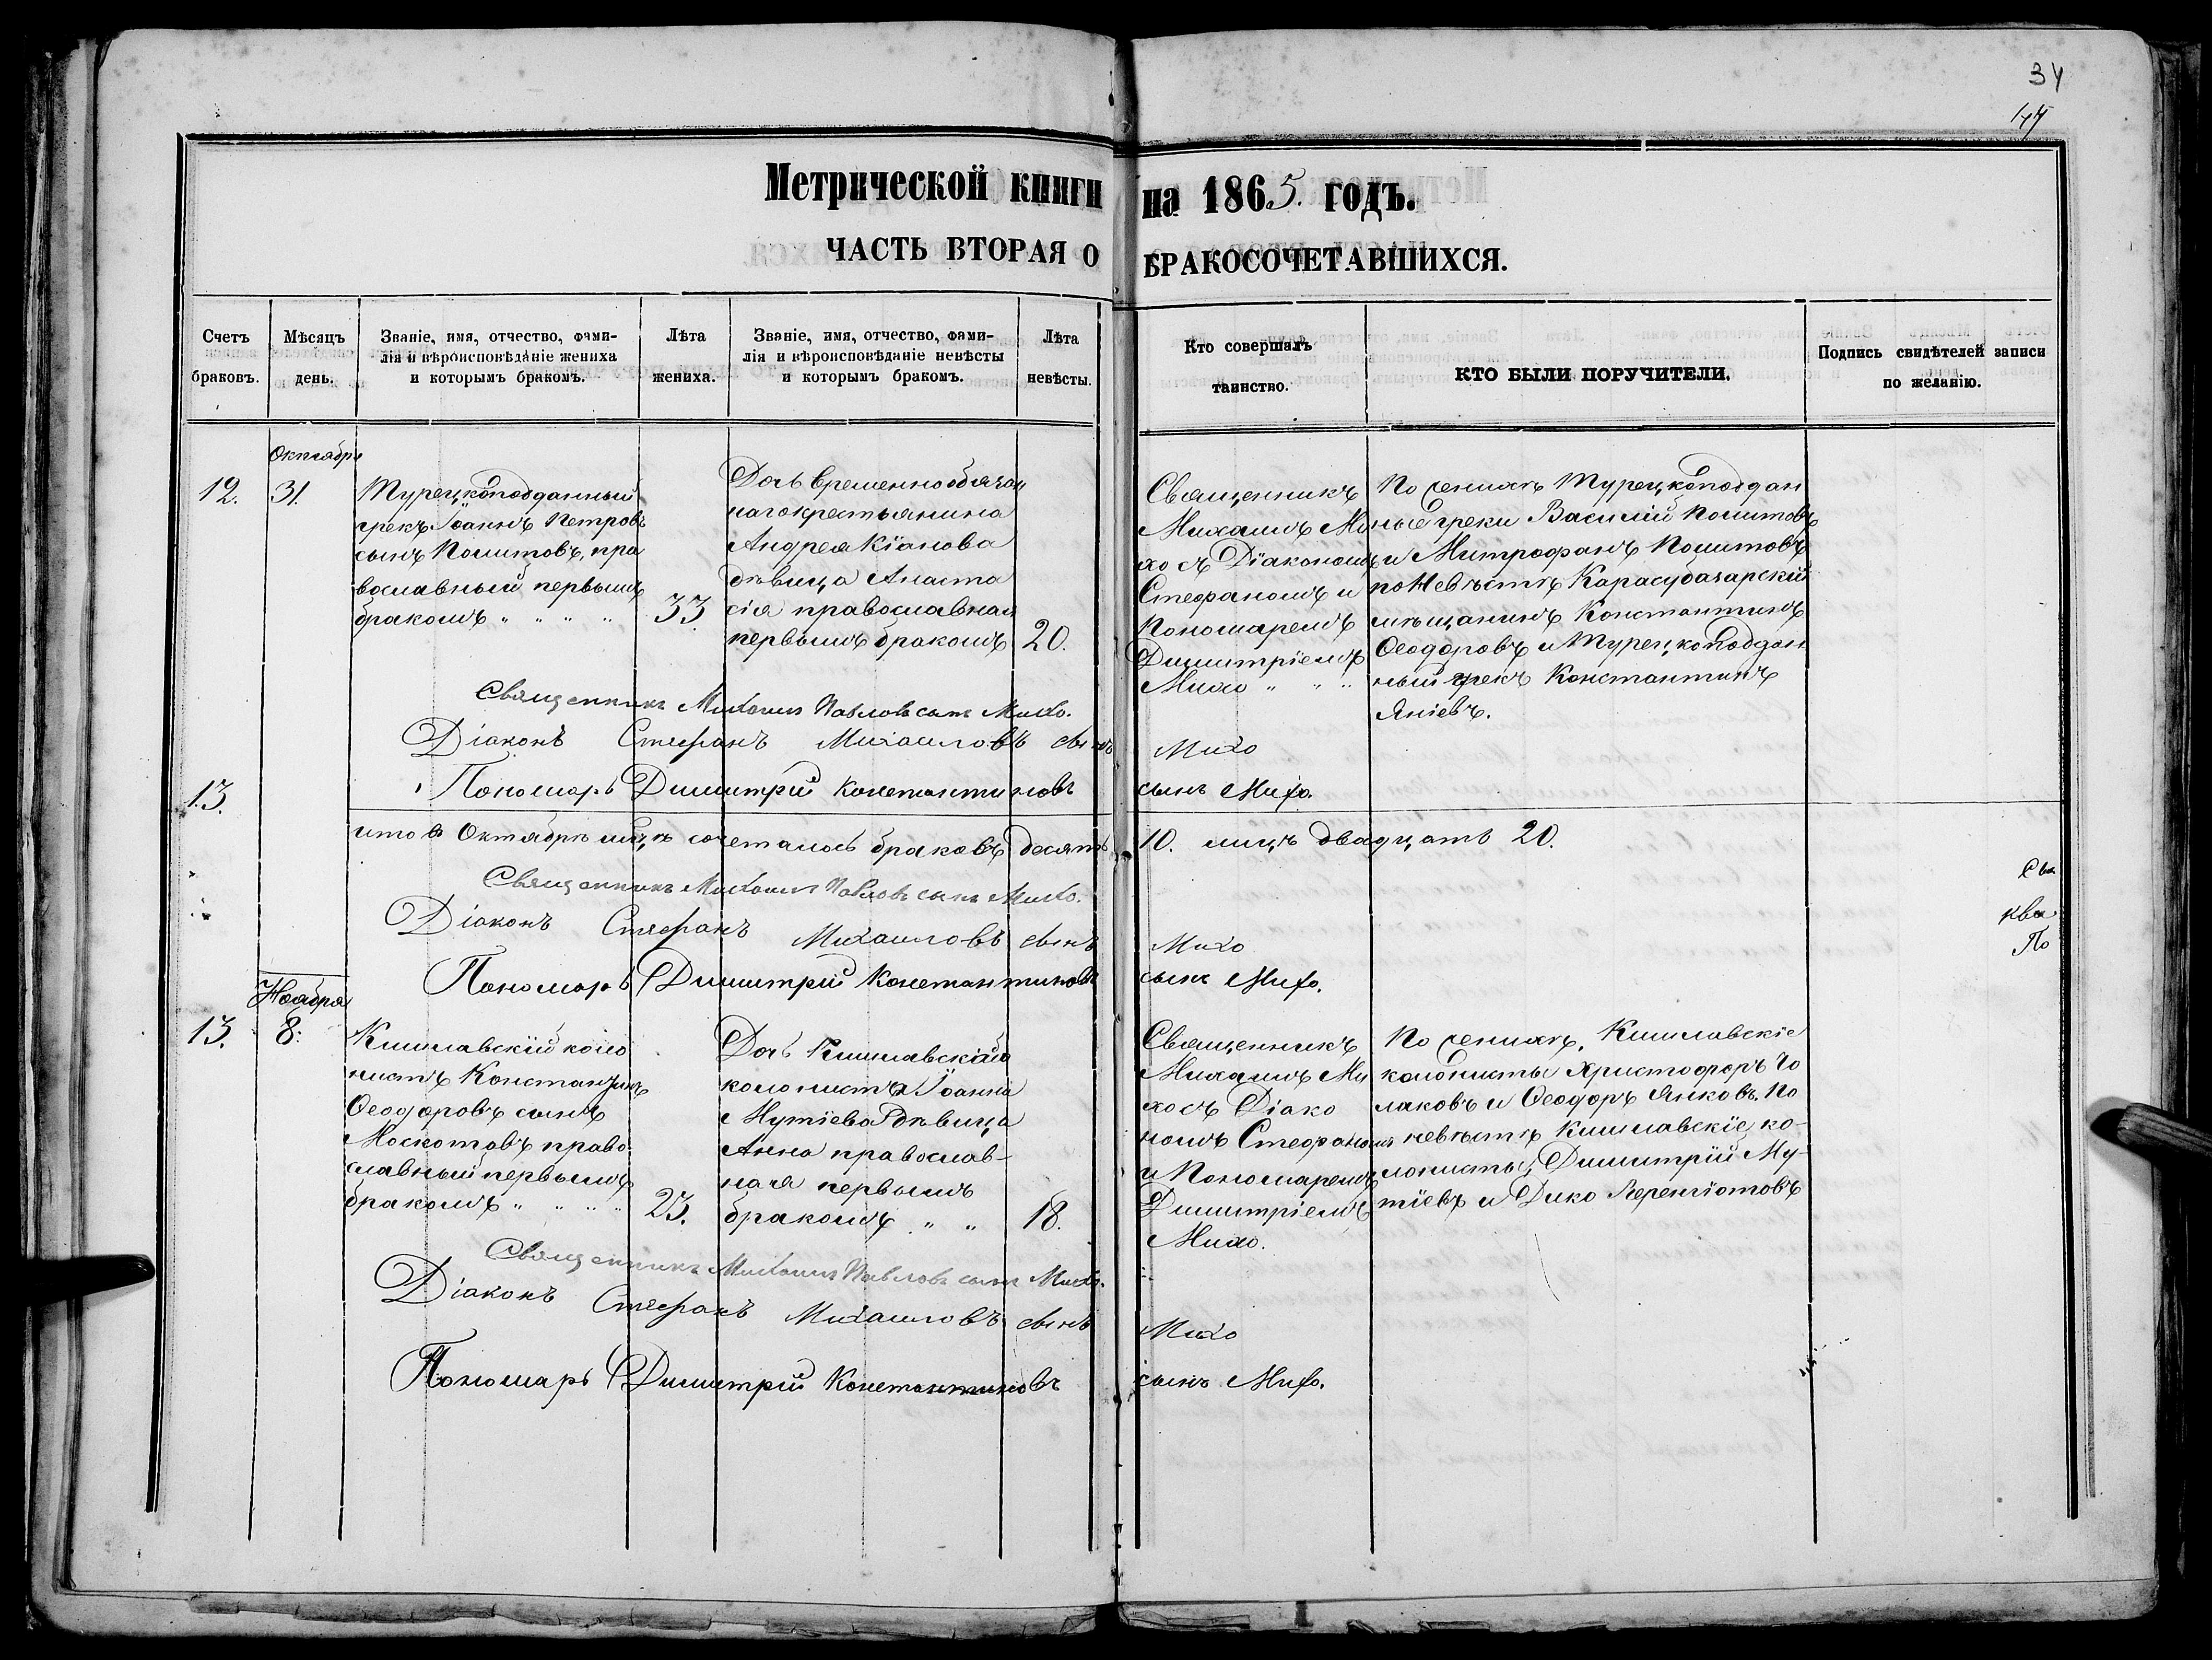 34
Метрической книги на 1865. годъ.
ЧАСТЬ ВТОРАЯ О БРАКОСОЧЕТАВШИХСЯ.
Счетъ браковъ.
Мѣсяцъ день.
Званіе, имя, отчество, фами-
лія и вѣроисповѣданіе жениха
и которымъ бракомъ.
Лѣта
жениха.
Званіе, имя, отчество, фами-
лія и вѣроисповѣданіе невѣсты
и которымъ бракомъ.
Лѣта
невѣсты.
Кто совершалъ
таинство.
КТО БЫЛИ ПОРУЧИТЕЛИ.
Подпись свидѣтелей записи
по желанію.
Октября
12. 31.
Турецкоподданный
грекъ Іоаннъ Петровъ
сынъ Политовъ, пра
вославный первымъ
бракомъ " " " "
33
Дочь временнообязан
наго крестьянина
Андрея Кіанова
дѣвица Анаста
сія православная
первымъ бракомъ
20.
Священникъ
Михаилъ Ми
хо съ Діакономъ
Стефаномъ и
Пономаремъ
Димитріемъ
Михо " " "
По женихѣ Турецкоподдан
ные греки Василій Политовъ
и Митрофанъ Политовъ
по Невѣстѣ Карасубазарскій
мѣщанинъ Константинъ
Ѳеодоровъ и Турецкоподдан
ный грекъ Константинъ
Яніевъ.
Священникъ Михаилъ Павловъ сынъ Михо.
Діаконъ Стефанъ Михаиловъ сынъ Михо
Пономарь Димитрій Константиновъ сынъ Михо.
13.
итого въ Октябрѣ мцѣ сочеталось браковъ десять 10. лицъ двадцать 20.
Священникъ Михаилъ Павловъ сынъ Михо.
Діаконъ Стефанъ Михаиловъ сынъ Михо
Пономарь Димитрій Константиновъ сынъ Михо.
Свя
ква
По
Ноября
13. 8.
Кишлавскій коло
нистъ Константинъ
Ѳеодоровъ сынъ
Москотовъ право
славный первымъ
бракомъ " " " "
23.
Дочь Кишлавскаго
колониста Іоанна
Мутіева дѣвица
Анна православ-
ная первымъ
бракомъ " "
18.
Священникъ
Михаилъ Ми
хо съ Діако
номъ Стефаномъ
и Пономаремъ
Димитріемъ
Михо.
По женихѣ, Кишлавскіе
колонисты Христофоръ Чо
лаковъ и Ѳеодоръ Янковъ. По
невѣстѣ Кишлавскіе ко-
лонисты, Димитрій Му-
тіевъ и Дико
Священникъ Михаилъ Павловъ сынъ Михо.
Діаконъ Стефанъ Михаиловъ сынъ Михо
Пономарь Димитрій Константиновъ сынъ Михо.